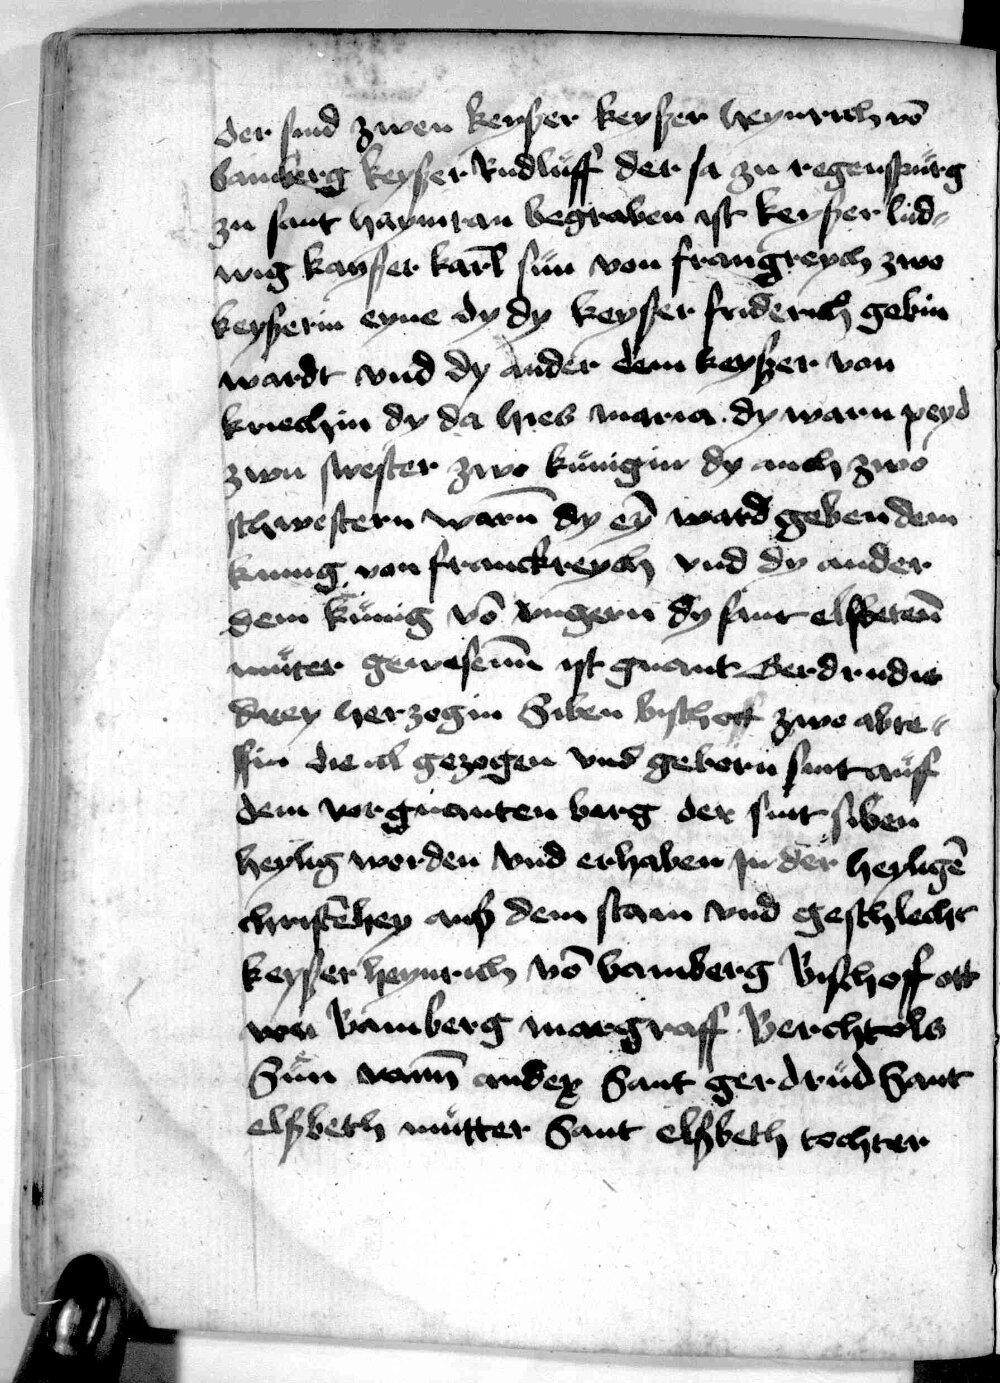 der sind zwen keyßer keyßer heynrich vō
bamberg keyßer Rudluff der ja zu regenspurg
zu sant haymran begraben ist keyßer lud-
wig kayßer karl sun von frangreych zwo
keyßerin eyne dy dy keyßer friderich gebin
wardt vnd dy ander dem keyßer von
kriechin dy da hies maria dy warn peyd
zwu swester zwo kunigin dy auch zwo
schwestern warn̄ dy eȳ ward geben dem
kunig von franckreych vnd dy ander
dem kunig vō vngern dy sant elsbeten̄
muter gewesenn̄ ist gnant Gerdrudis
drey herzogin Siben bischoff zwo abte-
ssin die al gezogen vnd geborn sint auff
dem vorgnanten berg der sint siben
heylig worden vnd erhaben Jn der heyligē
christēhey auß dem stam vnd geschlecht
keyßer heynrich vō bamberg Bischoff ott
von bamberg margraff Berchtols
Sun andex Sant gerdrud Sant
elßbeth mutter Sant elßbeth tochter